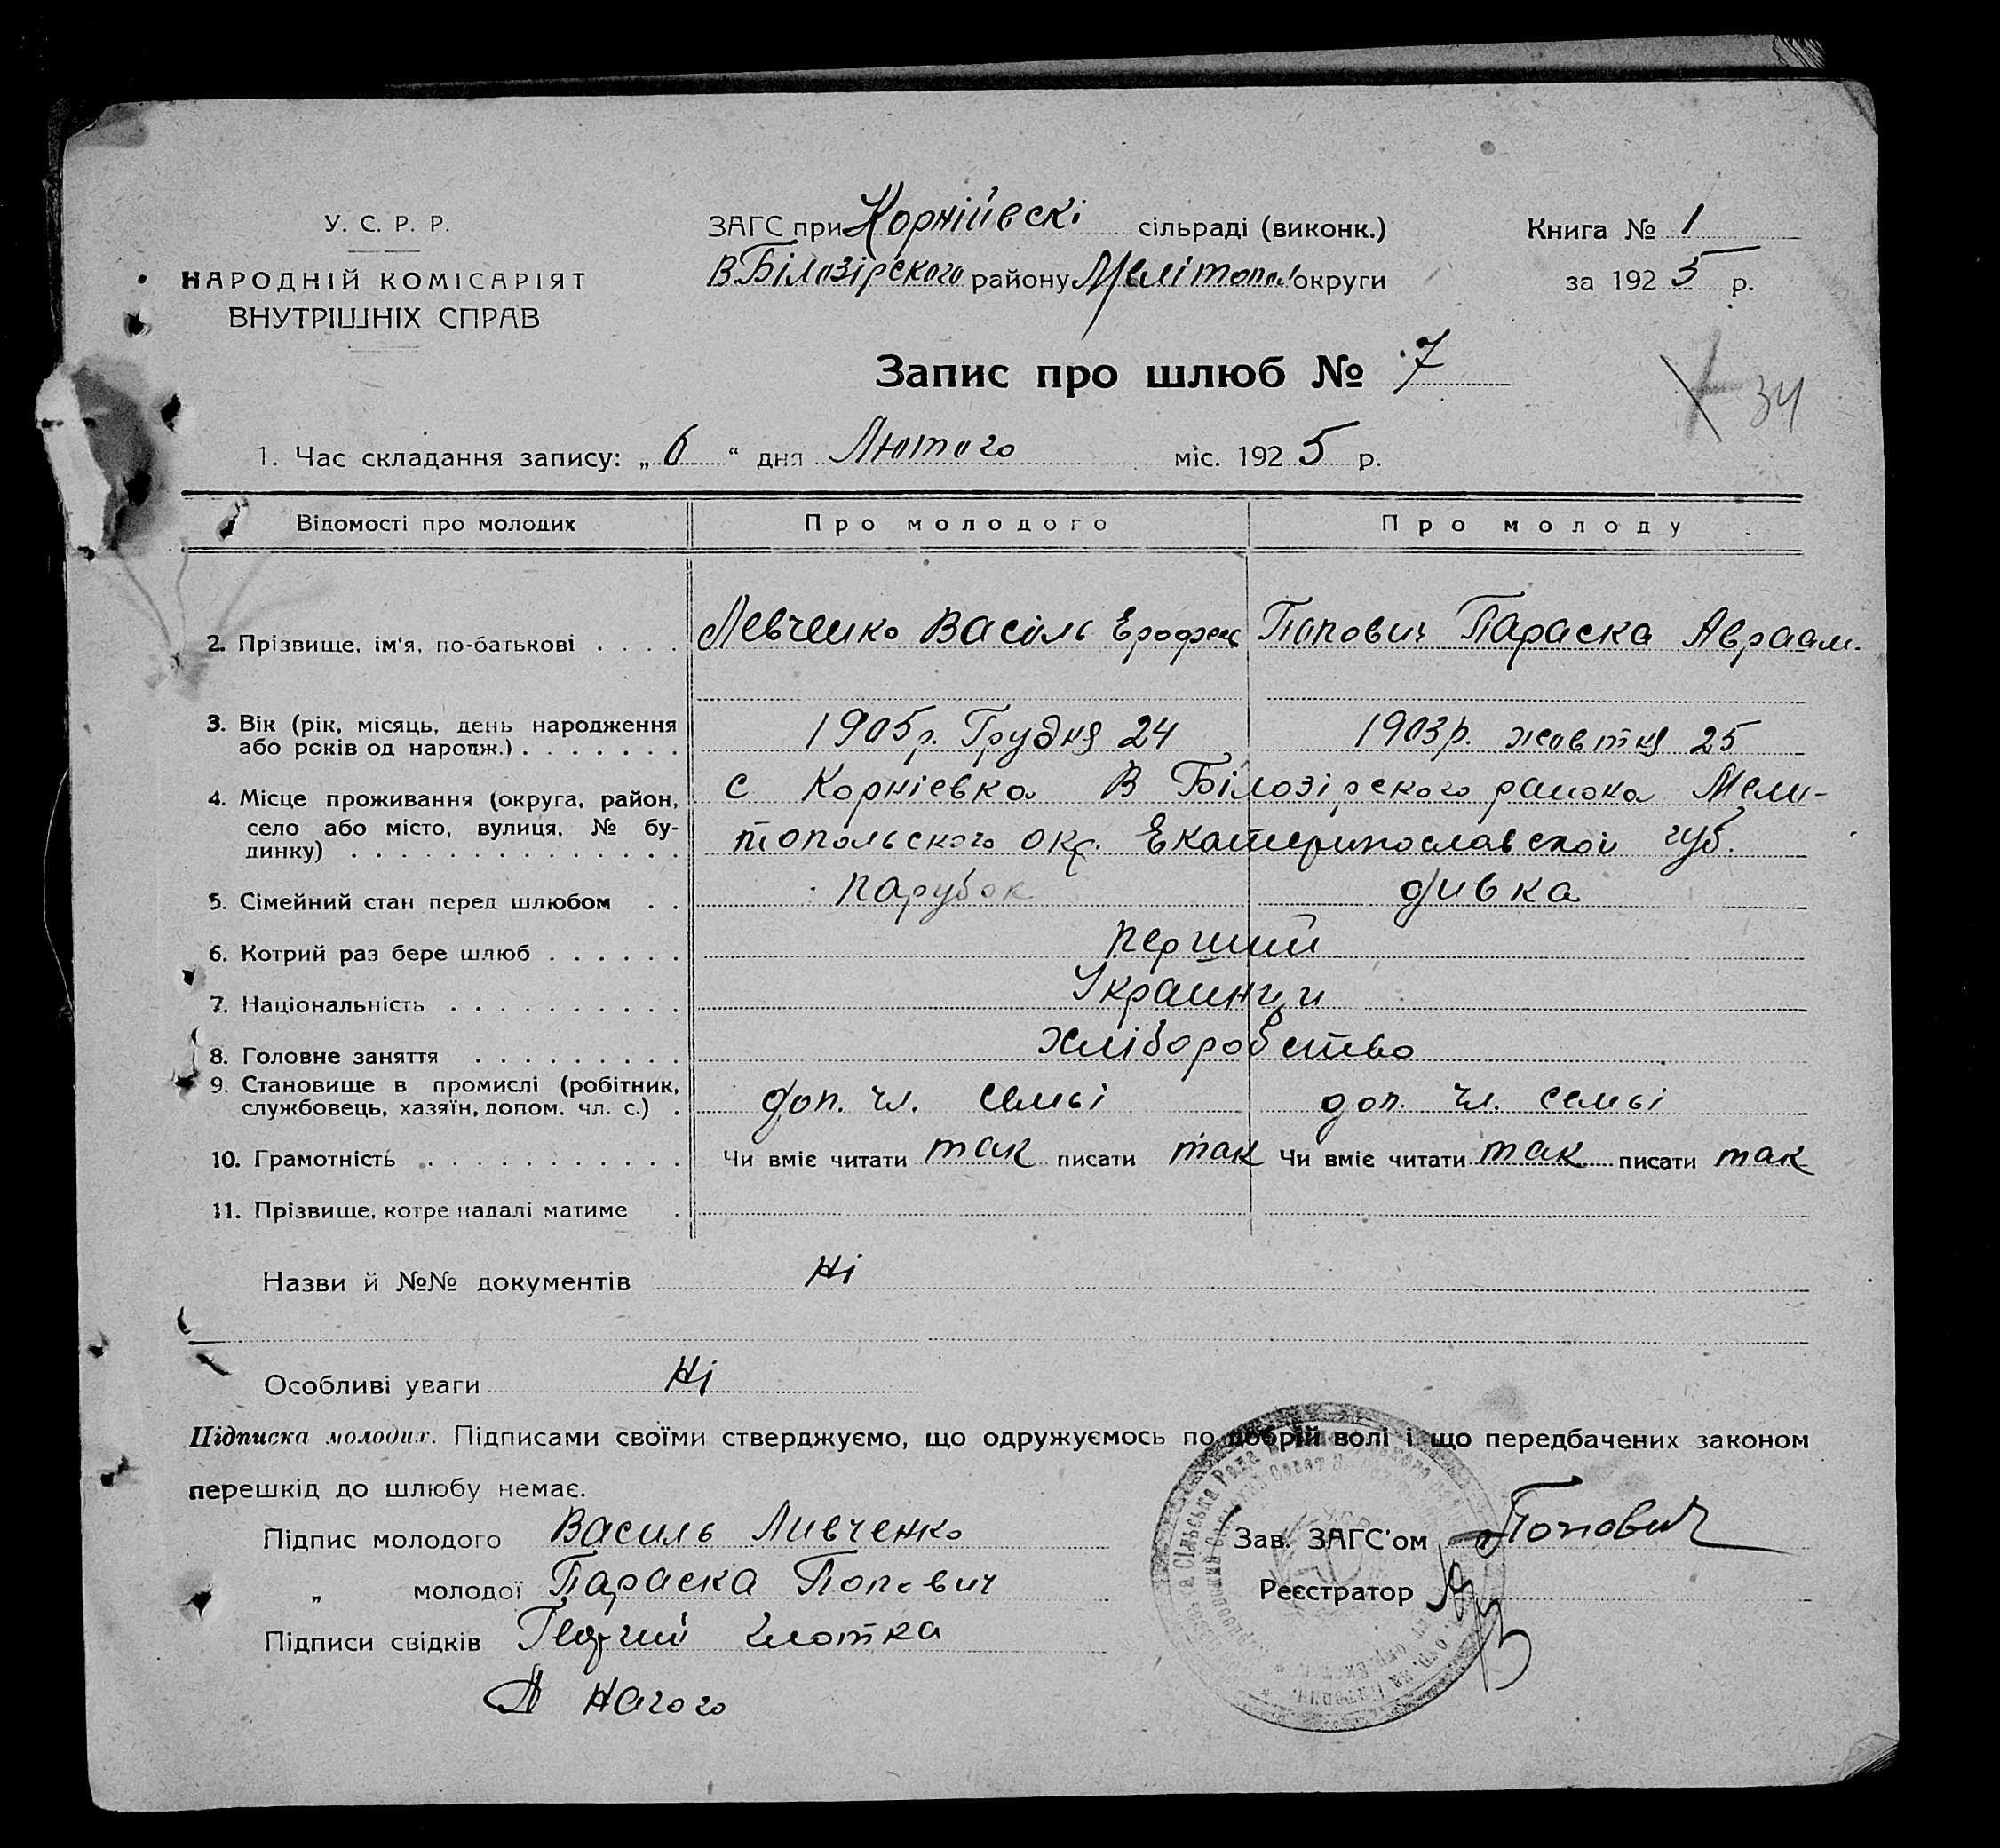 У. С. Р. Р.
НАРОДНІЙ КОМІСАРІЯТ
ВНУТРІШНІХ СПРАВ
ЗАГС при Корніївскі сільраді (виконк.)
В Білозірского району Мелітопол округи
Книга № 1
за 1925 р.
Запис про шлюб № 7
34
1. Час складання запису: „6“ дня Лютого міс. 1925 р.
Відомості про молодих Про молодого Про молоду
2. Прізвище, ім'я, по-батькові . . . . Левченко Васіль Ерофее Попович Параска Авраам.
3. Вік (рік, місяць, день народження 1905р. Грудня 24 1903р. жовтня 25
або років од народж.) . . . . . . .
4. Місце проживання (округа, район, с Корніевка В Білозірского раиона Мели-
село або місто, вулиця, № бу- топольского окр. Екатеринославскои губ.
динку) . . . . . . . . . . . . . .
5. Сімейний стан перед шлюбом . . парубок дивка
6. Котрий раз бере шлюб . . . . . . перший
7. Національність . . . . . . . . . . Украинци
8. Головне заняття . . . . . . . . . хліборобство
9. Становище в промислі (робітник, доп. чл. семьі доп. чл. семьі
службовець, хазяїн, допом. чл. с.) .
10. Грамотність . . . . . . . . . . . Чи вміє читати так писати так Чи вміє читати так писати так
11. Прізвище, котре надалі матиме .
Назви й №№ документів Ні
Особливі уваги Ні
Підписка молодих. Підписами своїми стверджуємо, що одружуємось по добрій волі і що передбачених законом
перешкід до шлюбу немає.
Підпис молодого Василь Ливченко
Зав. ЗАГС'ом Попович
„ молодої Параска Попович
Реєстратор
Підписи свідків Георгий
Нагого
Сільська Рада